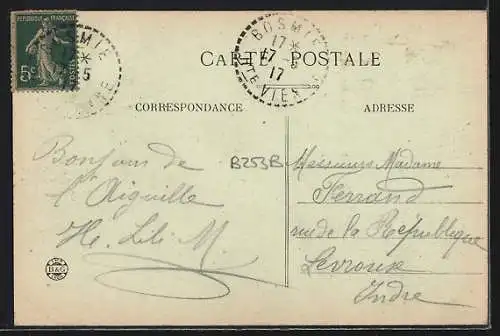 REPUBLIQUE FRANÇAISE
5c
POSTES
BOSMIE
17 *
17 - 5
17
HTE VIENNE
CARTE POSTALE
CORRESPONDANCE
ADRESSE
Bonjour de
l'Aiguille
He. Lili M.
B253B
Messieurs Madame
Ferrand
rue de la République
Levroux
Indre
B&G